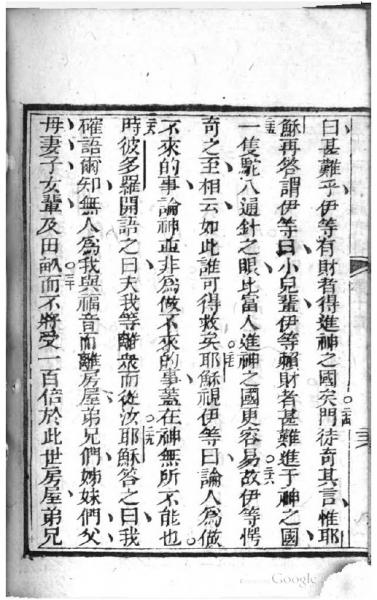 曰甚難乎伊等有財者得進神之國矣〇二四門徒奇其言惟耶
穌再答謂伊等曰小兒輩伊等賴財者甚難進于神之國
二五一隻駝入通針之眼比富人進神之國更容易〇二六故伊等愕
奇之至相云如此誰可得救矣〇二七耶穌視伊等曰論人爲做
不來的事論神並非爲做不來的事蓋在神無所不能也
二八時彼多羅開語之曰夫我等離衆而從汝〇二九耶穌答之曰我
確語術知無人爲我與福音而離房屋弟兄們姊妹們父
母妻子女輩及田畝〇三十而不將受一百倍於此世房屋弟兄
Google